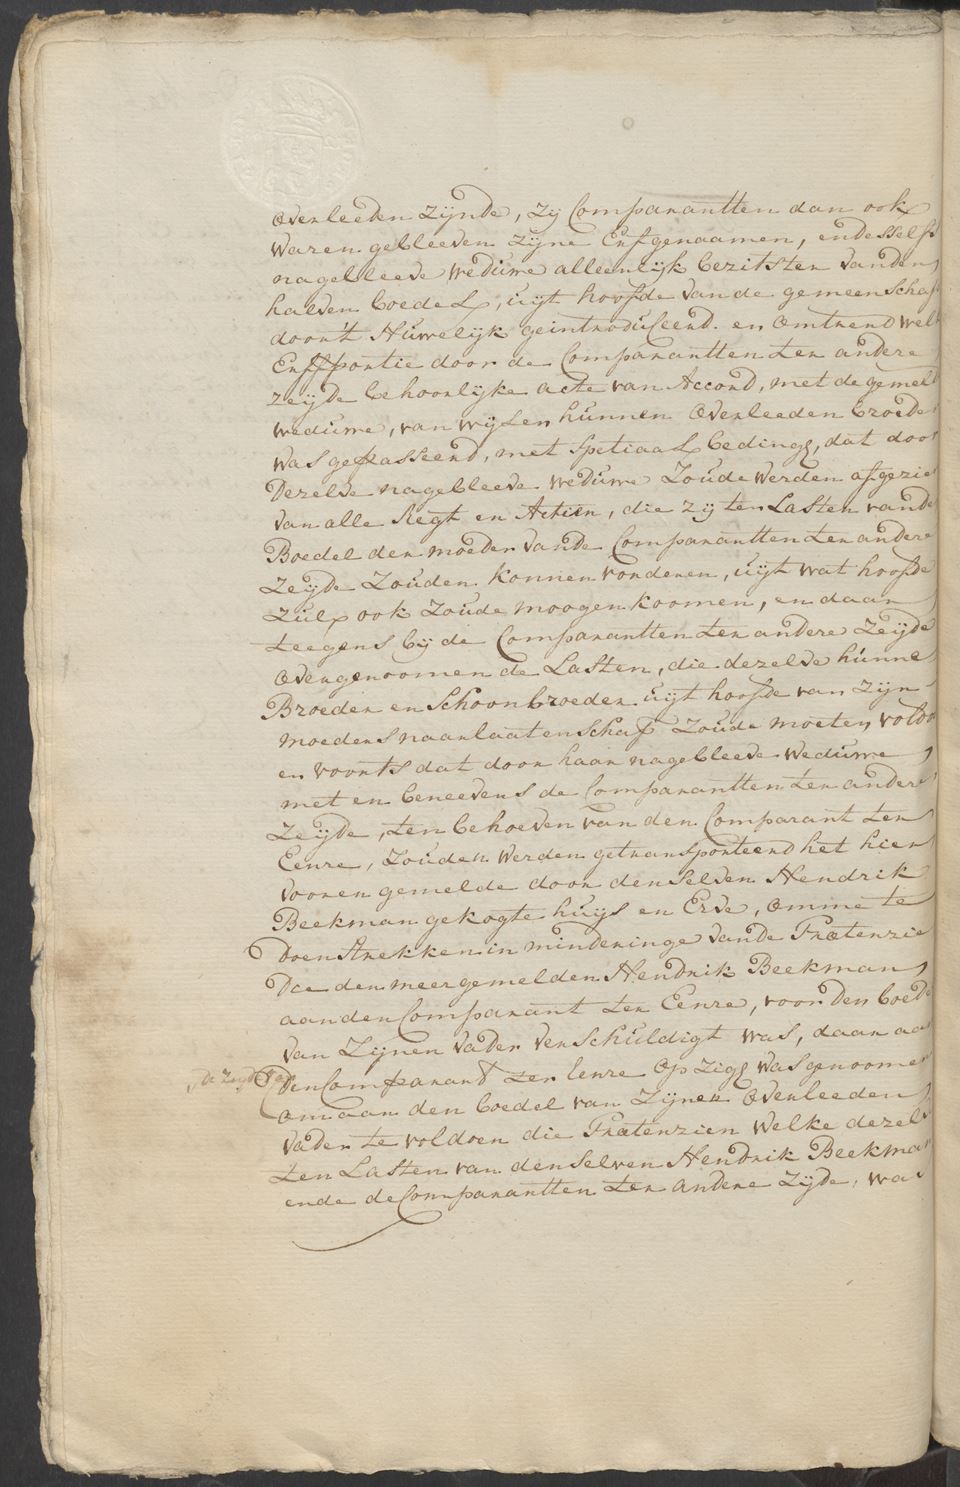 overleeden zijnde, zij Comparantten dan ook
waren gebleeven zijne Erfgenaamen, en desselfs
nagebleeve weduwe alleenlijk bezitster vanden
halven boedel, uijt hoofde van de gemeenschap
door't Huwelijk geintroduseerd. en omtrend welk
Erffportie door de Comparantten ter andere
zeijde behoorlijke acte van Accord, met de gemeld
weduwe, van wijlen hunnen overleeden broeder
was gepasseerd, met spetiaal beding, dat door
dezelve nagebleeve weduwe zoude werden afgezien
van alle Regt en Actien, die zij ten Lasten vande
Boedel der moeder vande Comparantten ter andere
zeijde zouden konnen vorderen, uijt wat hoofde
zulx ook zoude moogen koomen, en daar
teegens bij de Comparantten ter andere zeijde
overgenoomen de Lasten, die dezelve hunne
Broeder en schoonbroeder uijt hoofde van zijn
moeders naarlaatenschap zoude moeten voldo
en voorts dat door haar nagebleeve weduwe
met en beneevens de Comparantten ter andere
zeijde, ten behoeven van den Comparant ter
Eenre, zouden werden getransporteerd het hier
vooren gemelde door denselven Hendrik
Beekman gekogte huijs en Erve, omme te
doen strekken in minderinge vande Prætenzie
Die den meergemelden Hendrik Beekman
aan den Comparant ter Eenre, voor den boedel
van zijnen vader verschuldigt was, daar aan
de zeijde
den Comparant ter eenre op zig was genoomen
om aan den boedel van zijnen overleeden
vader te voldoen die Prætenzien welke dezelve
ten Lasten van denselven Hendrik Beekman
ende de Comparantten ter andere zijde, was